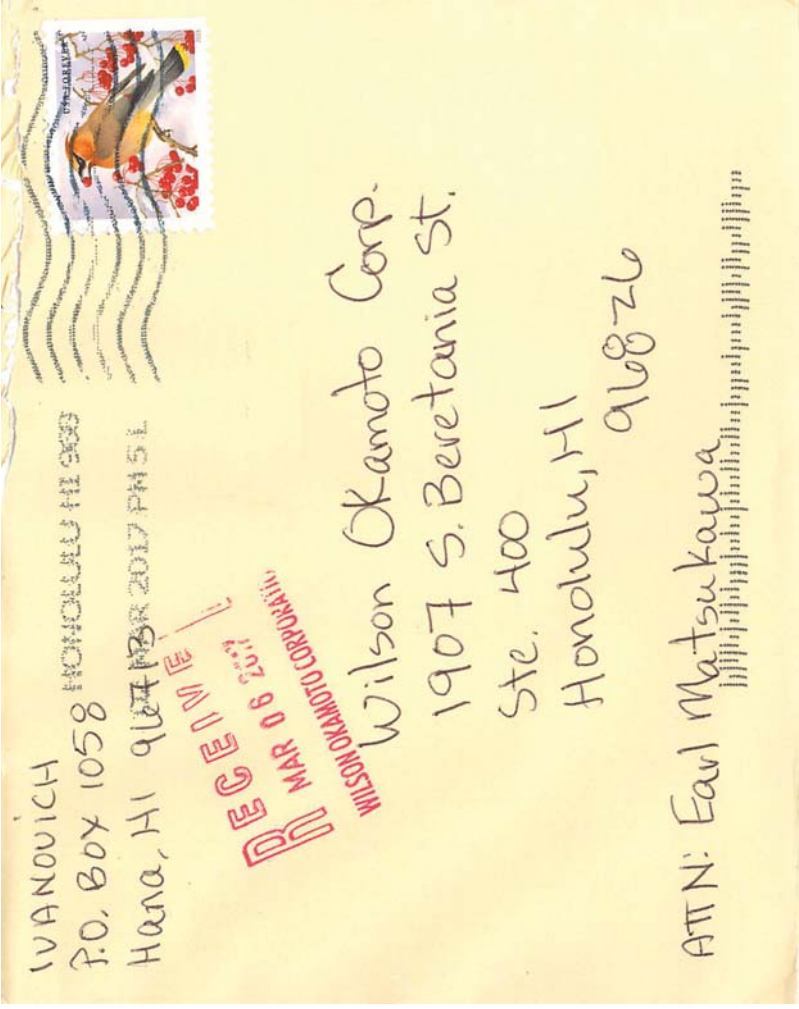 IVANOVICH
P.O. BOX 1058
Hana, HI 96713
HONOLULU HI
MAR 2017 PM 5 L
USA FOREVER
RECEIVE
MAR 06 2017
WILSON OKAMOTO CORPORATION
Wilson Okamoto Corp.
1907 S. Beretania St.
Ste. 400
Honolulu, HI
96826
ATTN: Earl Matsukawa